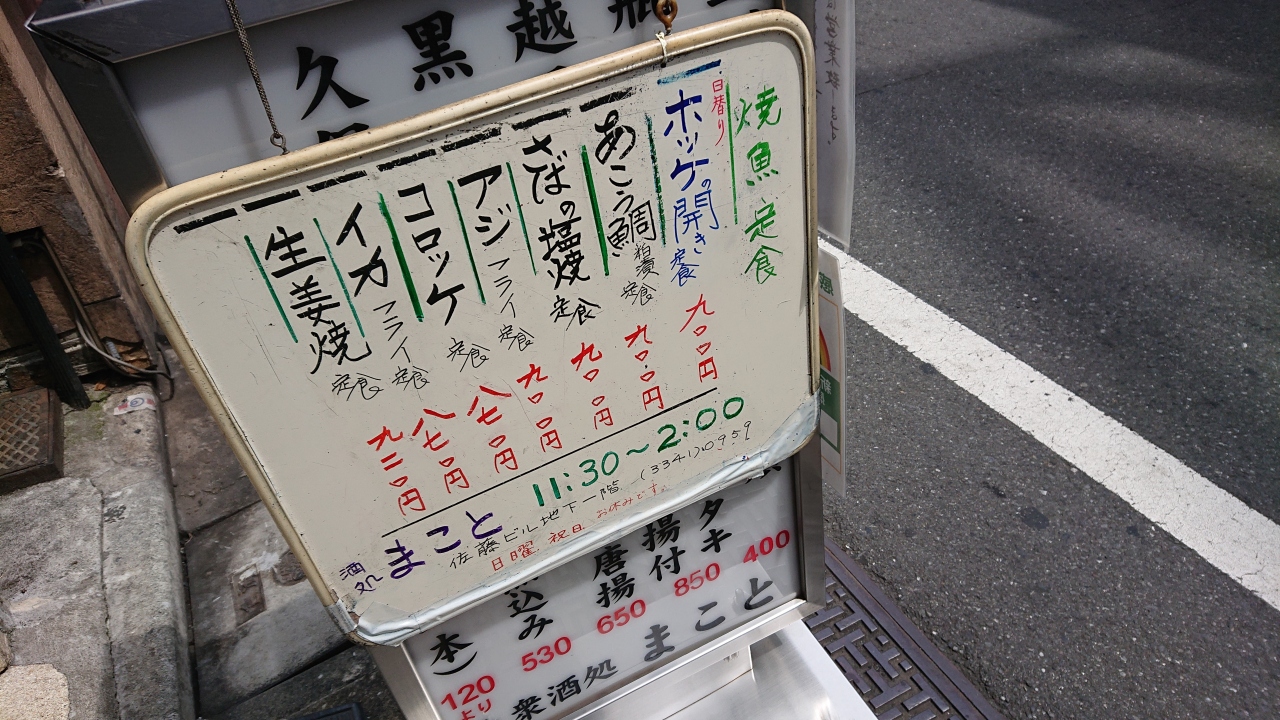 焼魚定食
日替り
ホッケの開き定食 九〇〇円
あこう鯛粕漬定食 九〇〇円
さばの塩焼定食 九〇〇円
アジフライ定食 九〇〇円
コロッケ定食 八七〇円
イカフライ定食 八七〇円
生姜焼定食 九二〇円
11:30〜2:00
(3341)0959
佐藤ビル地下一階
日曜 祝日 お休みです。
酒処 まこと
越
黒
久
タキ 400
揚付 850
唐揚 650
込み 530
本) 120より
衆酒処 まこと